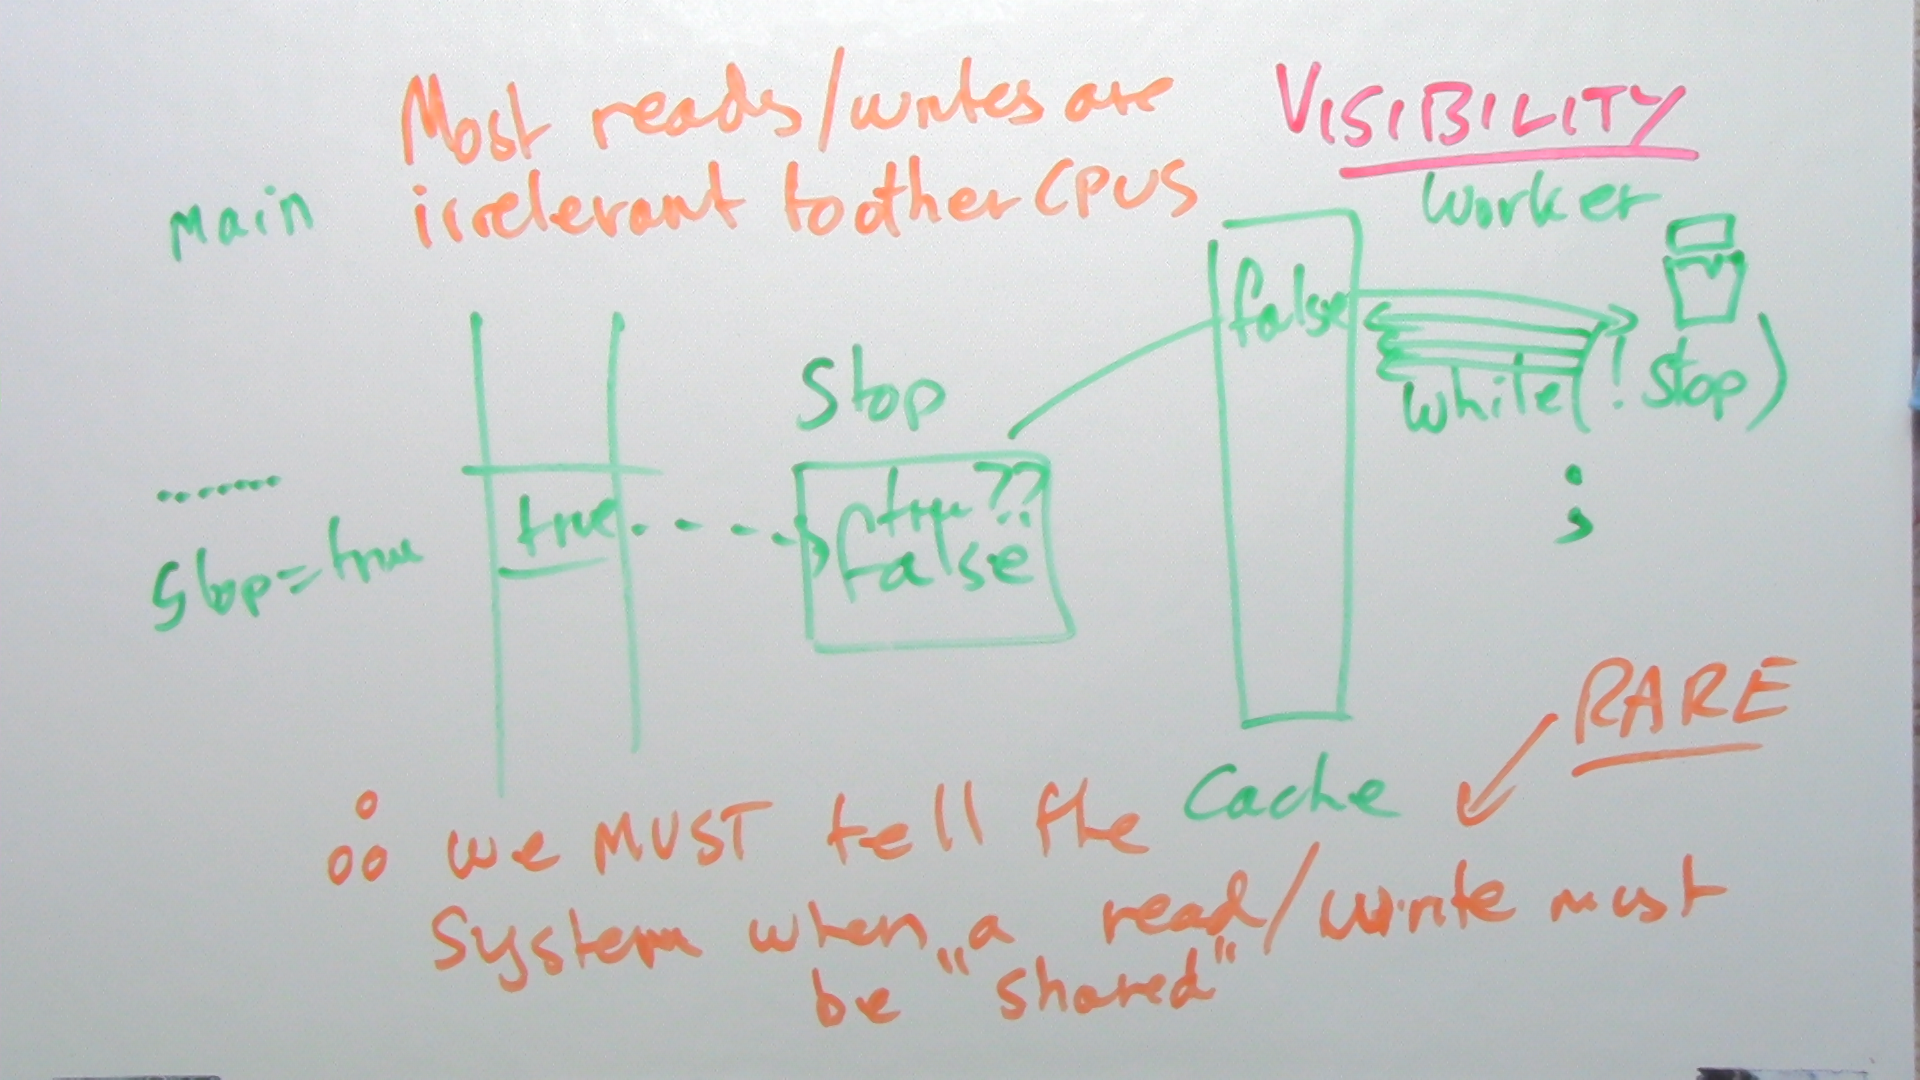 Most reads/writes are
irrelevant to other CPUS
VISIBILITY
Main
Worker
false
Stop
while(!stop)
;
.......
Stop=true
true
true??
false
Cache
RARE
∴ we MUST tell the
System when a read/write must
be "shared"